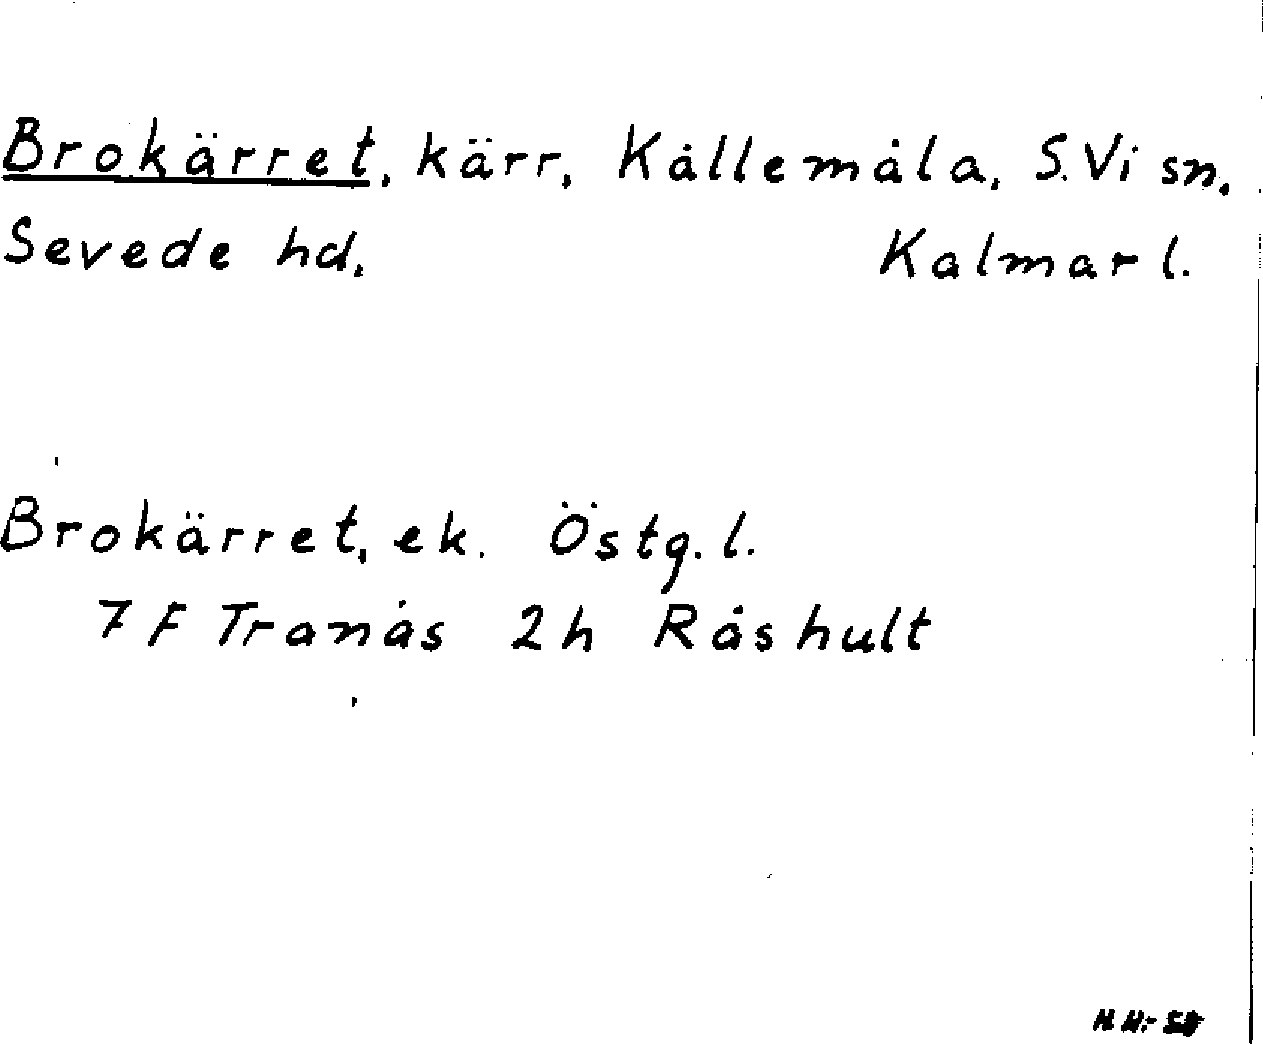 Brokärret, kärr, Kållemåla, S.Vi sn.
Sevede hd. Kalmar l.
Brokärret, ek. Östg. l.
7 F Tranås 2h Råshult